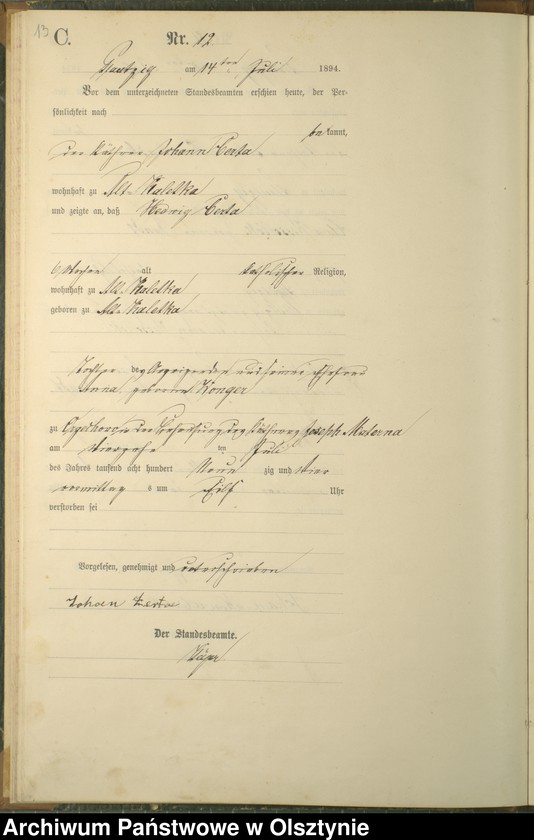 13
C.
Nr. 12
am 14ten Juli 1894.
Vor dem unterzeichneten Standesbeamten erschien heute, der Per-
sönlichkeit nach
bekannt,
der Johann Certa
wohnhaft zu Alt Kaletka
und zeigte an, daß Hedwig Certa
6 Wochen alt katholischer Religion,
wohnhaft zu Alt Kaletka
geboren zu Alt Kaletka
Tochter des Anzeigenden und seiner Ehefrau
Anna geborne Konger
zu in der Behausung des Joseph Materna
am vierzehn ten Juli
des Jahres tausend acht hundert Neun zig und vier
vormittags um Eilf Uhr
verstorben sei
Vorgelesen, genehmigt und unterschrieben
Johan Certa
Der Standesbeamte.
Archiwum Państwowe w Olsztynie